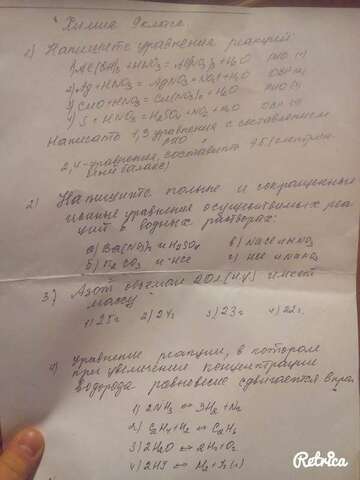 Химия 9 класс
1) Напишите уравнения реакций
1) Al(OH)3+HNO3 = Al(NO3)3+H2O РИО (1)
2) Ag+HNO3 = AgNO3+NO2+H2O ОВР (2)
3) CuO+HNO3 = Cu(NO3)2+H2O РИО (3)
4) S+HNO3=H2SO4+NO2+H2O ОВР (4)
Написать 1,3 уравнения с составлением
РИО
2,4 - уравнения, составить ЭБ (электрон.
ный баланс)
2) Напишите полные и сокращенные
ионные уравнения осуществимых реа
ций в водных растворах:
а) Ba(NO3)2 и H2SO4 в) NaCl и HNO3
б) и HCl г) HCl и
3) Азот объемом 20л (н.у) имеет
массу
1) 25г. 2) 24г. 3) 23г. 4) 22г.
4) Уравнение реакции, в котором
при увеличении концентрации
водорода равновесие сдвигается впра
1) 2NH3 ⇔ 3H2 + N2
2) C2H4+H2 ⇔ C2H6
3) 2H2O ⇔ 2H2+O2
4) 2HI ⇔ H2+I2(г)
Retrica